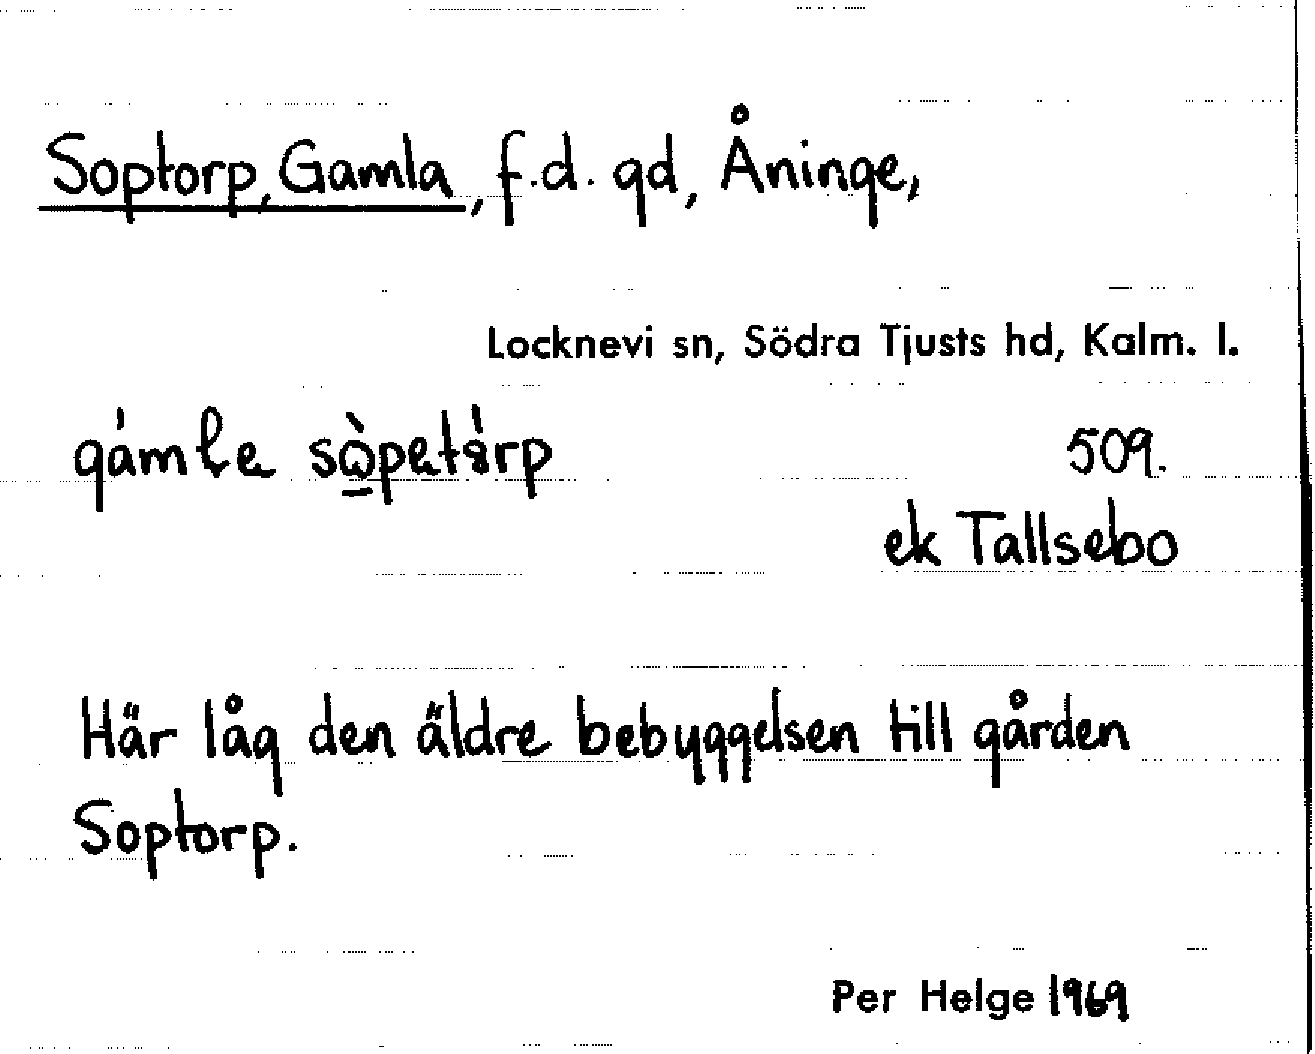 Soptorp, Gamla, f.d. gd, Åninge,
Locknevi sn, Södra Tjusts hd, Kalm. l.
gámle sò̱petàrp 509.
ek Tallsebo
Här låg den äldre bebyggelsen till gården
Soptorp.
Per Helge 1969